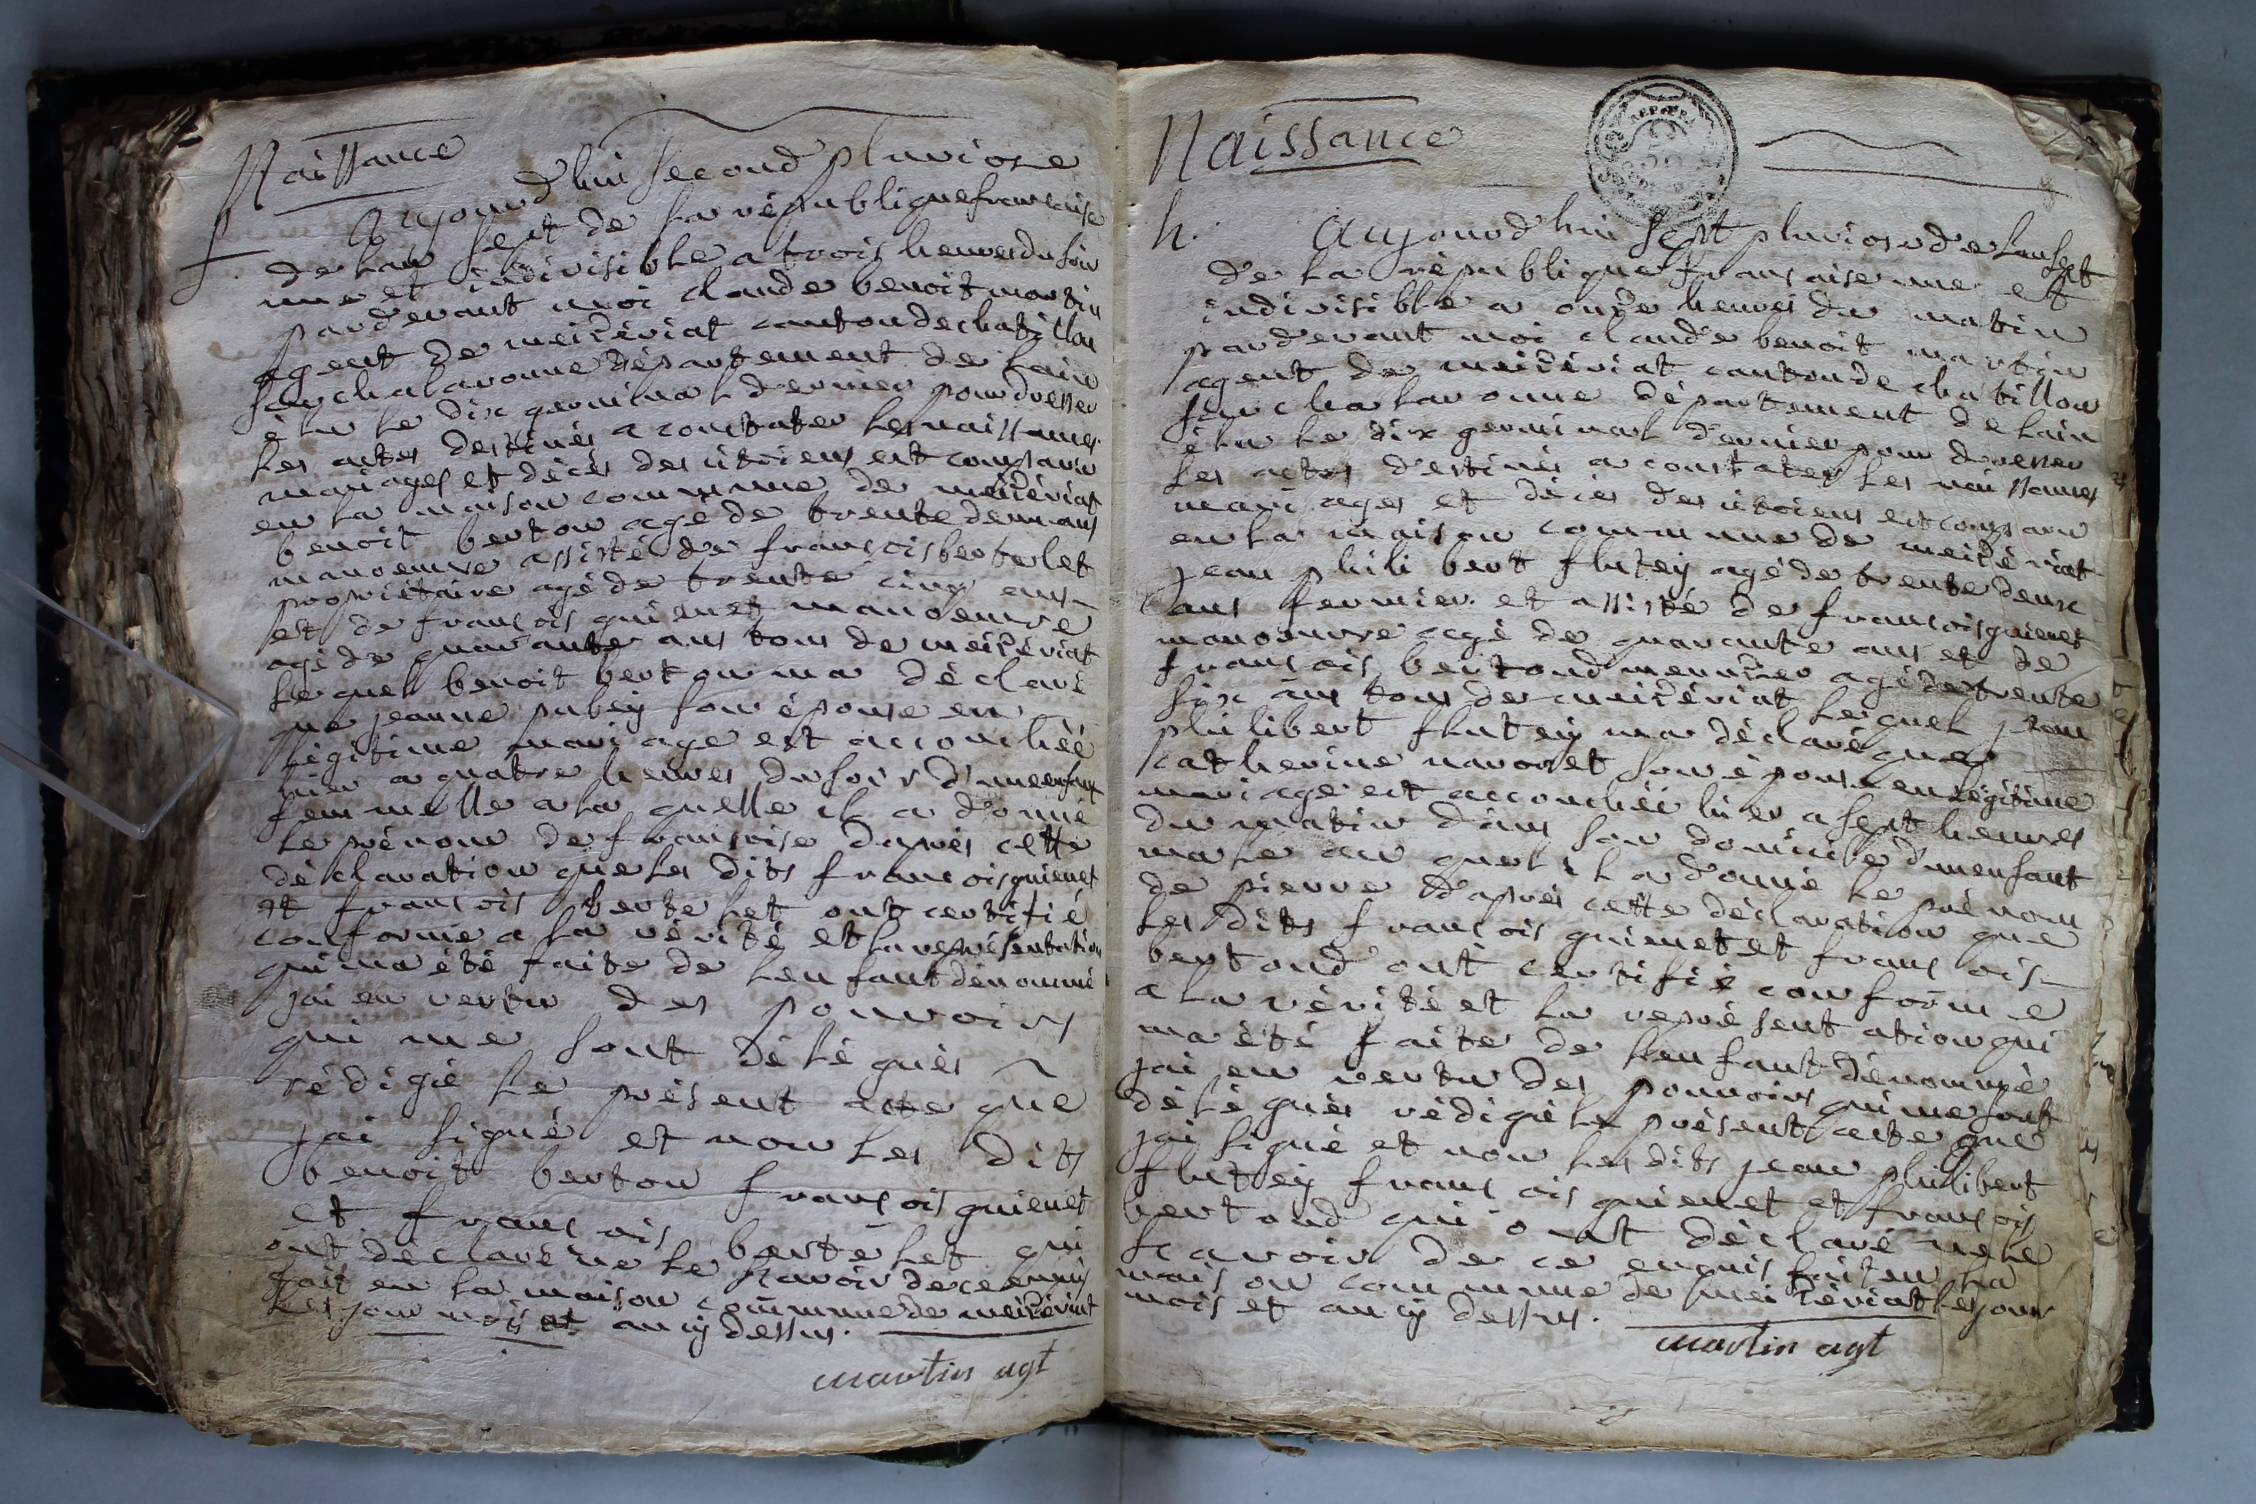 Naissance
f. aujourd'hui second pluviose
de lan sept de la république francaise
une et indivisible a trois heures du soir
pardevant moi claude benoit martin
agent de meizériat canton de chatillon
sur chalaronne département de lain
élu le dix germinal dernier pour dresser
les actes destinés a constater les naissances
mariages et décès des citoiens est comparu
en la maison commune de meizériat
benoit berton agé de trente deux ans
manoeuvre assisté de francois bertelet
propriétaire agé de trente cinq ans
et de francois guienet manoeuvre
agé de quarante ans tous de meizériat
lequel benoit berton ma déclaré
que jeanne pubey son épouse en
légitime mariage est accouchée
hier a quatre heures du soir d'une enfant
femmelle a la quelle il a donné
le prénom de francoise dapres cette
déclaration que les dits francois guienet
et francois bertelet ont certifié
conforme a la vérité et la représentation
qui ma été faite de lenfant dénommé
jai en vertu des pouvoirs
qui me sont délégués
rédigé le présent acte que
jai signé et non les dits
benoit berton francois guienet
et francois bertelet qui
ont déclaré ne le scavoir de ce enquis
fait en la maison commune de meizériat
les jour mois et an cy dessus.
martin agt
Naissance
h. aujourd'hui sept pluviose de lan sept
de la république francaise une et
indivisible a onze heures du matin
pardevant moi claude benoit martin
agent de meizériat canton de chatillon
sur chalaronne département de lain
élu le dix germinal dernier pour dresser
les actes destinés a constater les naissances
mariages et décès des citoiens est comparu
en la maison commune de meizériat
jean philibert flutey agé de trente deux
ans fermier et assisté de francois guienet
manoeuvre agé de quarante ans et de
francois bertond meunier agé de trente
six ans tous de meizériat lequel jean
philibert flutey ma déclaré que
catherine navoret son épouse en légitime
mariage est accouchée hier a sept heures
du matin dans son domicile d'un enfant
male au quel il a donné le prénom
de pierre d'après cette déclaration que
les dits francois guienet et francois
bertond ont certifié conforme
a la vérité et la représentation qui
ma été faite de lenfant dénommé
jai en vertu des pouvoirs qui me sont
délégués rédigé le présent acte que
jai signé et non les dits jean philibert
flutey francois guienet et francois
bertond qui ont déclaré ne le
scavoir de ce enquis fait en la
maison commune de meizériat les jour
mois et an cy dessus.
martin agt